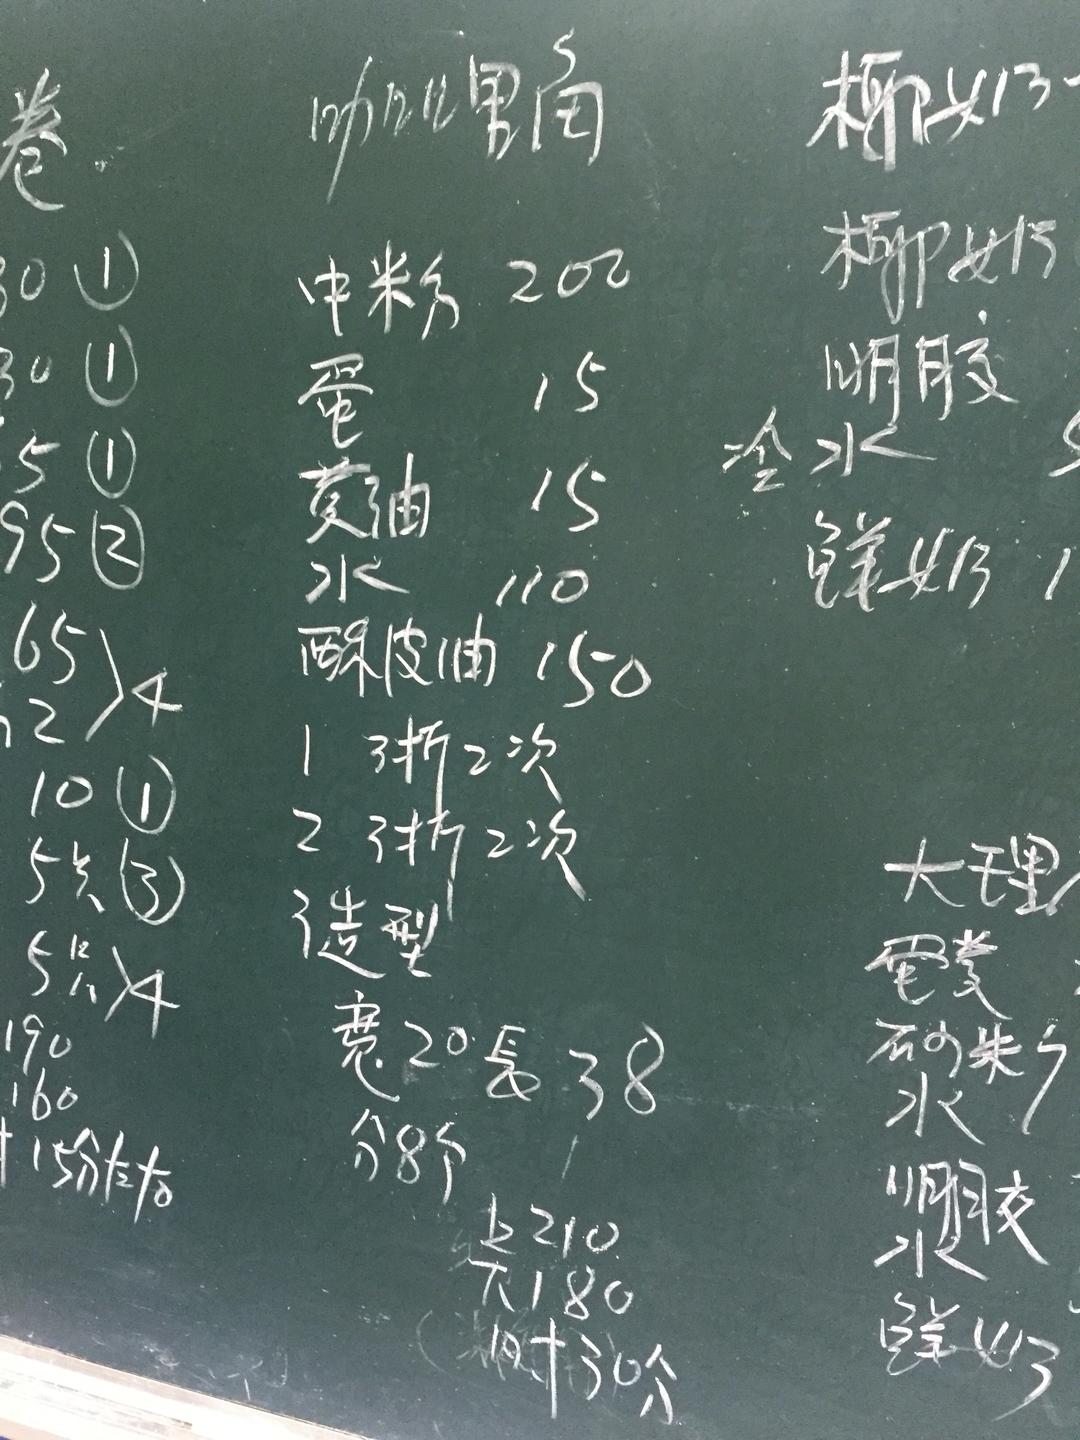 卷
30 ①
30 ①
5 ①
95 ②
65
2
④
10 ①
5点 ③
5
4
190
160
时 15分左右
咖啡里角
中粉 200
蛋 15
黄油 15
水 110
酥皮油 150
1 3折2次
2 3折2次
3 造型
宽20 長38
分8个
上210
下180
时30分
椰奶
椰奶
明胶
冷水 5
鲜奶 1
大理
蛋黄
砂糖
水
明胶
水
鲜奶